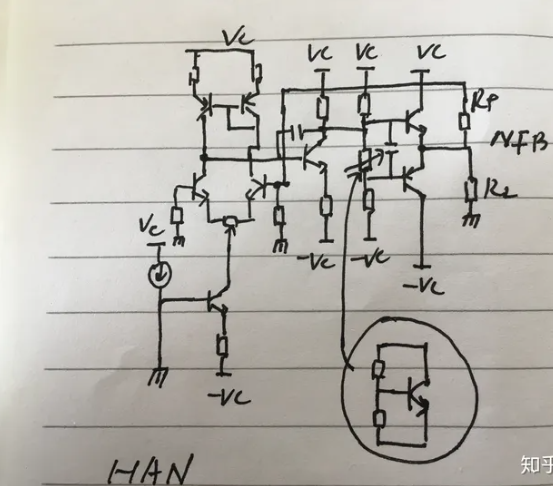 Vc
Vc Vc Vc
RP
NFB
RL
Vc
-Vc -Vc
-Vc
-Vc
HAN
知乎